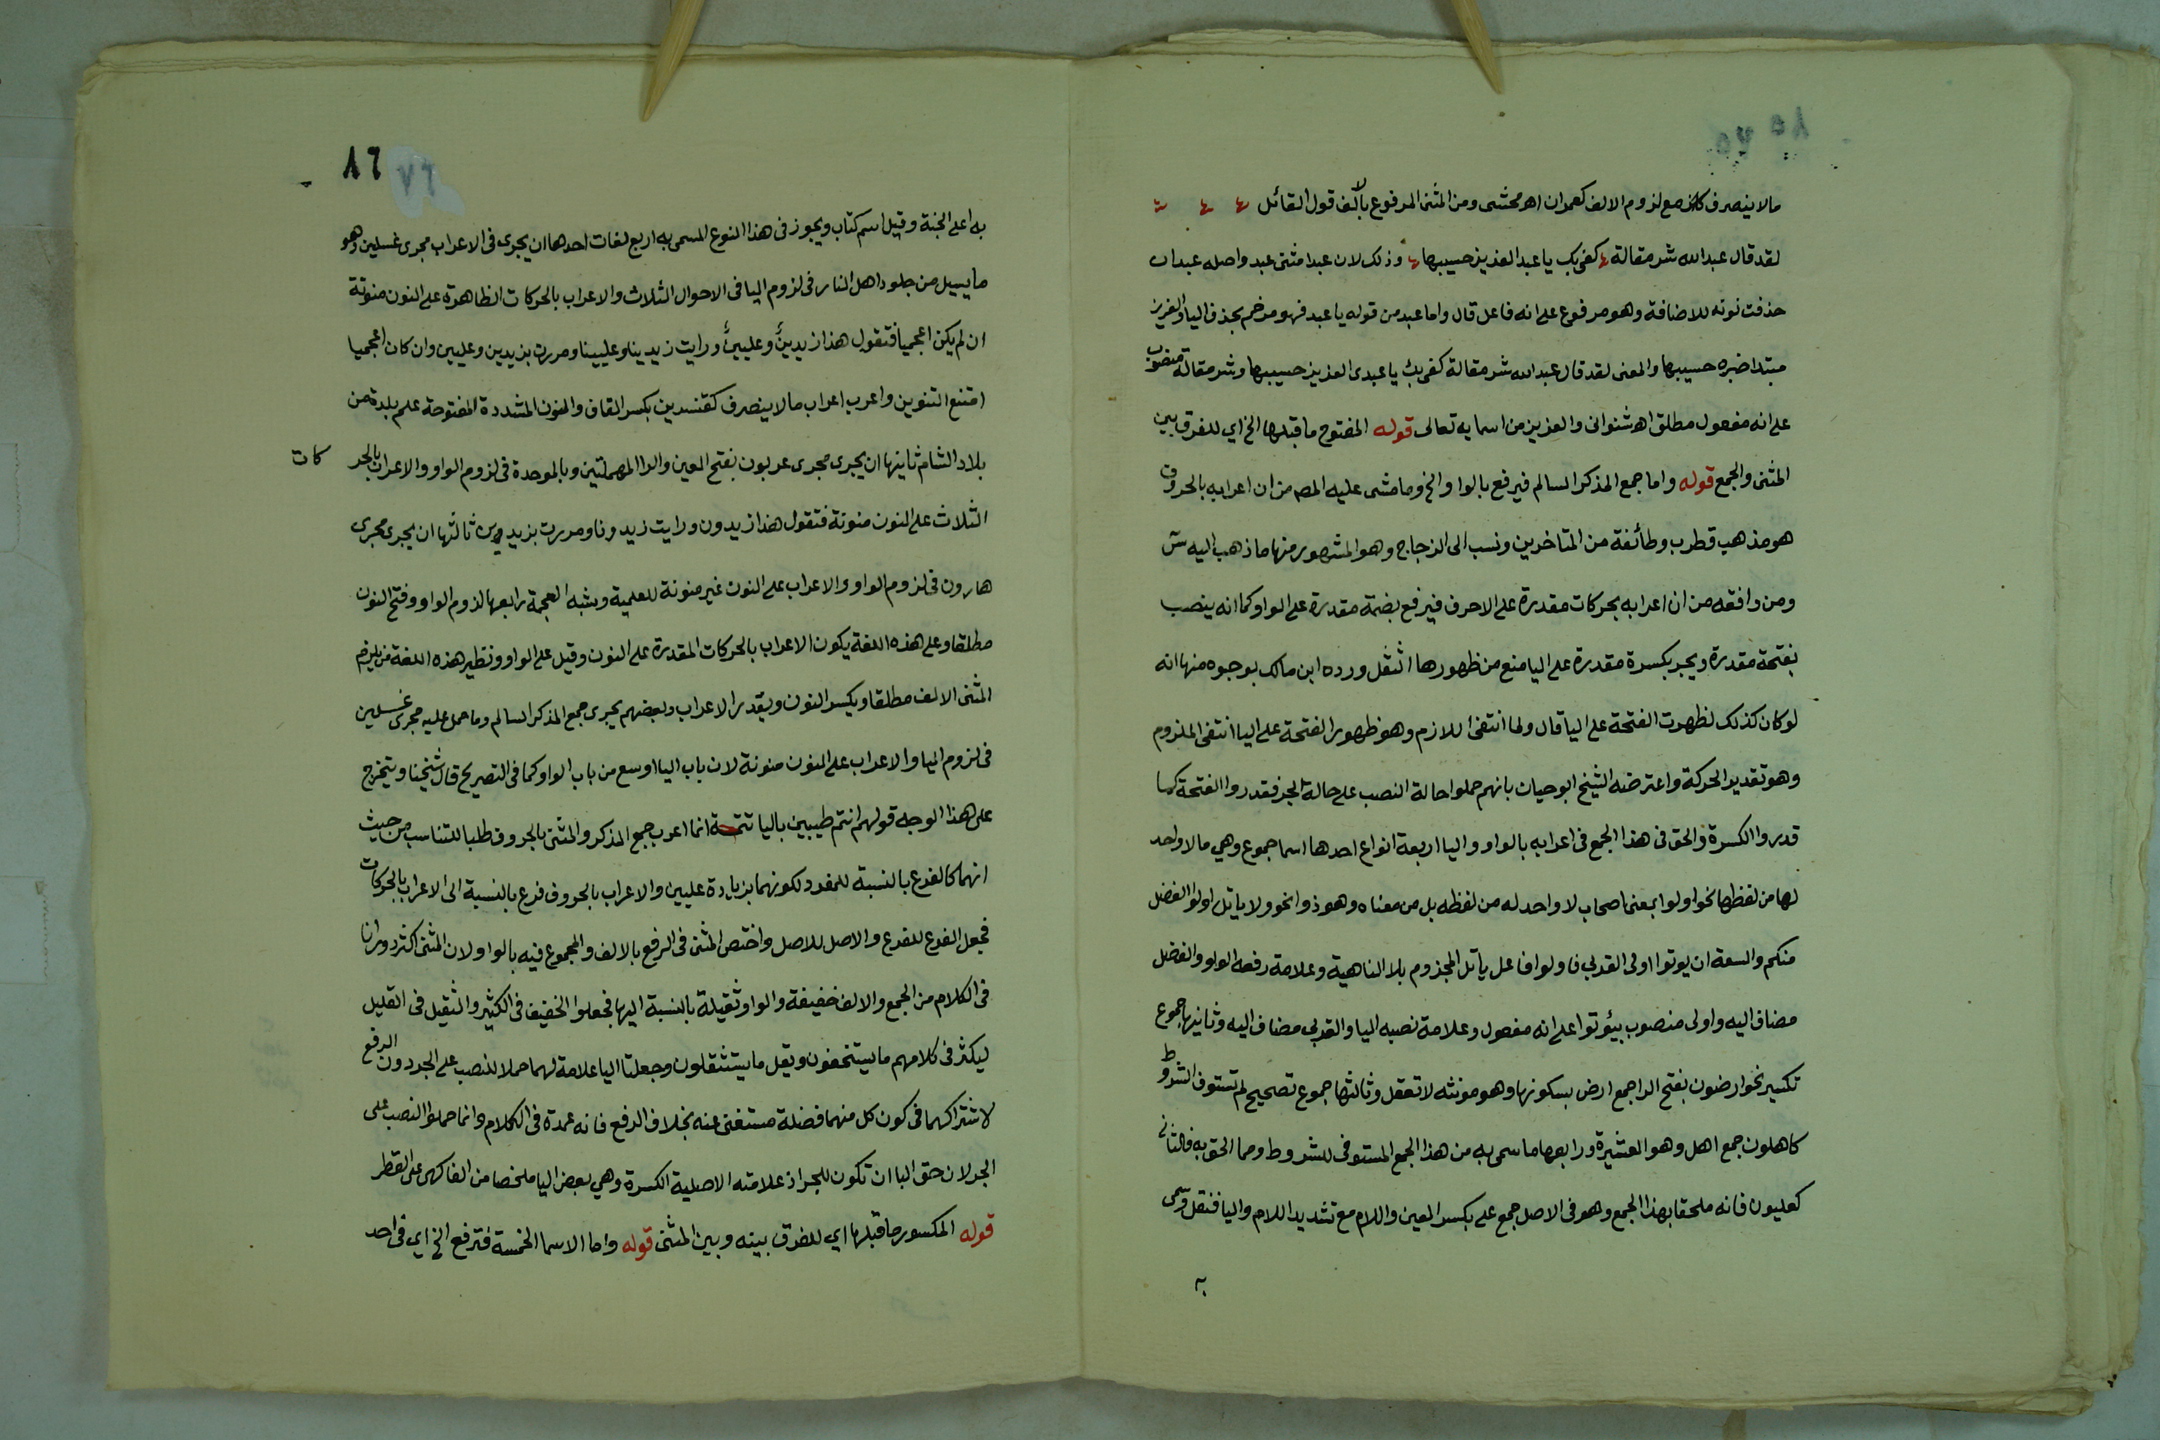 ٨٥ ٧٥
مالاينصرف كائن مع لزوم الالف كعمران اهـ محشى ومن المثنى المرفوع بالالف قول القائل
لقد قال عبدا الله شر مقالة كفى بك يا عبد العزيز حسيبها وذلك لان عبدا مثنى عبد واصله عبدان
حذفت نونه للاضافة وهو مرفوع على انه فاعل قال واما عبد من قوله يا عبد فهو مرخم بحذف اليا والعزيز
مبتدا خبره حسيبها والمعنى لقد قال عبدا الله شر مقالة كفى بك يا عبدى العزيز حسيبها وشر مقالة منصوب
على انه مفعول مطلق اهـ شنوانى والعزيز من اسمايه تعالى قوله المفتوح ما قبلها الخ اي للفرق بين
المثنى والجمع قوله واما جمع المذكر السالم فيرفع بالواو الخ وما مشى عليه المص من ان اعرابه بالحروف
هو مذهب قطرب وطائفة من المتاخرين ونسب الى الزجاج وهو المشهور منها ما ذهب اليه س
ومن وافقه من ان اعرابه بحركات مقدرة على الاحرف فيرفع بضمة مقدرة على الواو كما انه ينصب
بفتحة مقدرة ويجر بكسرة مقدرة على اليا منع من ظهورها الثقل ورده ابن مالك بوجوه منها انه
لو كان كذلك لظهرت الفتحة على اليا قال ولما انتفى اللازم وهو ظهور الفتحة على اليا انتفى الملزوم
وهو تقدير الحركة واعترضه الشيخ ابو حيان بانهم حملوا حالة النصب على حالة الجر فقدروا الفتحة كما
قدروا الكسرة والحق فى هذا الجمع فى اعرابه بالواو واليا اربعة انواع احدها اسما جموع وهي مالا واحد
لها من لفظها نحو اولوا بمعنى اصحاب لا واحد له من لفظه بل من معناه وهو ذو نحو ولا ياتل اولوا الفضل
منكم والسعة ان يوتوا اولى القربى فاولوا فاعل يأتل المجزوم بلا الناهية وعلامة رفعه الواو والفضل
مضاف اليه واولى منصوب بيؤتوا على انه مفعول وعلامة نصبه اليا والقربى مضاف اليه وثانيها جموع
تكسير نحو ارضون بفتح الرا جمع ارض بسكونها وهو مونثه لا تعقل وثالثها جموع تصحيح لم تستوف الشروط
كاهلون جمع اهل وهو العشيرة ورابعها ما سمى به من هذا الجمع المستوفى للشروط ومما الحق به فالثانى
كعليون فانه ملحقا بهذا الجمع وهو فى الاصل جمع على بكسر العين واللام مع تشديد اللام واليا فنقل وسمى
به
٨٦ ٧٦
به اعلى الجنة وقيل اسم كتاب ويجوز فى هذا النوع المسمى به اربع لغات احدها ان يجرى فى الاعراب مجرى غسلين وهو
ما يسيل من جلود اهل النار فى لزوم اليا فى الاحوال الثلاث والاعراب بالحركات الظاهرة على النون منونة
ان لم يكن اعجميا فتقول هذا زيدين وعليين ورايت زيدينا وعليينا ومررت بزيدين وعليين وان كان اعجميا
امتنع التنوين واعرب اعراب مالاينصرف كقنسرين بكسر القاف والنون المشددة المفتوحة علم بلدة من
بلاد الشام ثانيها ان يجرى مجرى عربون بفتح العين والرا المهملتين وبالموحدة فى لزوم الواو والاعراب بالحركات
الثلاث على النون منونة فتقول هذا زيدون ورايت زيدونا ومررت بزيدون ثالثها ان يجرى مجرى
هارون فى لزوم الواو والاعراب على النون غير منونة للعلمية وشبه العجمة رابعها لزوم الواو وفتح النون
مطلقا وعلى هذه اللغة يكون الاعراب بالحركات المقدرة على النون وقيل على الواو ونظير هذه اللغة من يلزم
المثنى الالف مطلقا ويكسر النون ويقدر الاعراب وبعضهم يجرى جمع المذكر السالم وما حمل عليه مجرى غسلين
فى لزوم اليا والاعراب على النون منونة لان باب اليا اوسع من باب الواو كما فى التصريح قال شيخنا ويتخرج
على هذا الوجه قولهم انتم طيبين باليا تتمة انما اعرب جمع المذكر والمثنى بالحروف طلبا للتناسب من حيث
انهما كالفرع بالنسبة للمفرد لكونهما بزيادة عليين والاعراب بالحروف فرع بالنسبة الى الاعراب بالحركات
فجعل الفرع للفرع والاصل للاصل واختص المثنى فى الرفع بالالف والمجموع فيه بالواو لان المثنى اكثر دورانا
فى الكلام من الجمع والالف خفيفة والواو ثقيلة بالنسبة اليها فجعلوا الخفيف فى الكثير والثقيل فى القليل
ليكثر فى كلامهم ما يستخفون ويقل ما يستثقلون وجعلتا اليا علامة لهما حملا للنصب على الجر دون الرفع
لاشتراكهما فى كون كل منهما فضلة مستغنى عنه بخلاف الرفع فانه عمدة فى الكلام وانما حملوا النصب على
الجر لان حق اليا ان تكون للجر اذ علامته الاصلية الكسرة وهي بعض اليا ملخصا من الفاكهى على القطر
قوله المكسور ما قبلها اي للفرق بينه وبين المثنى قوله واما الاسما الخمسة فترفع الخ اي فى احد